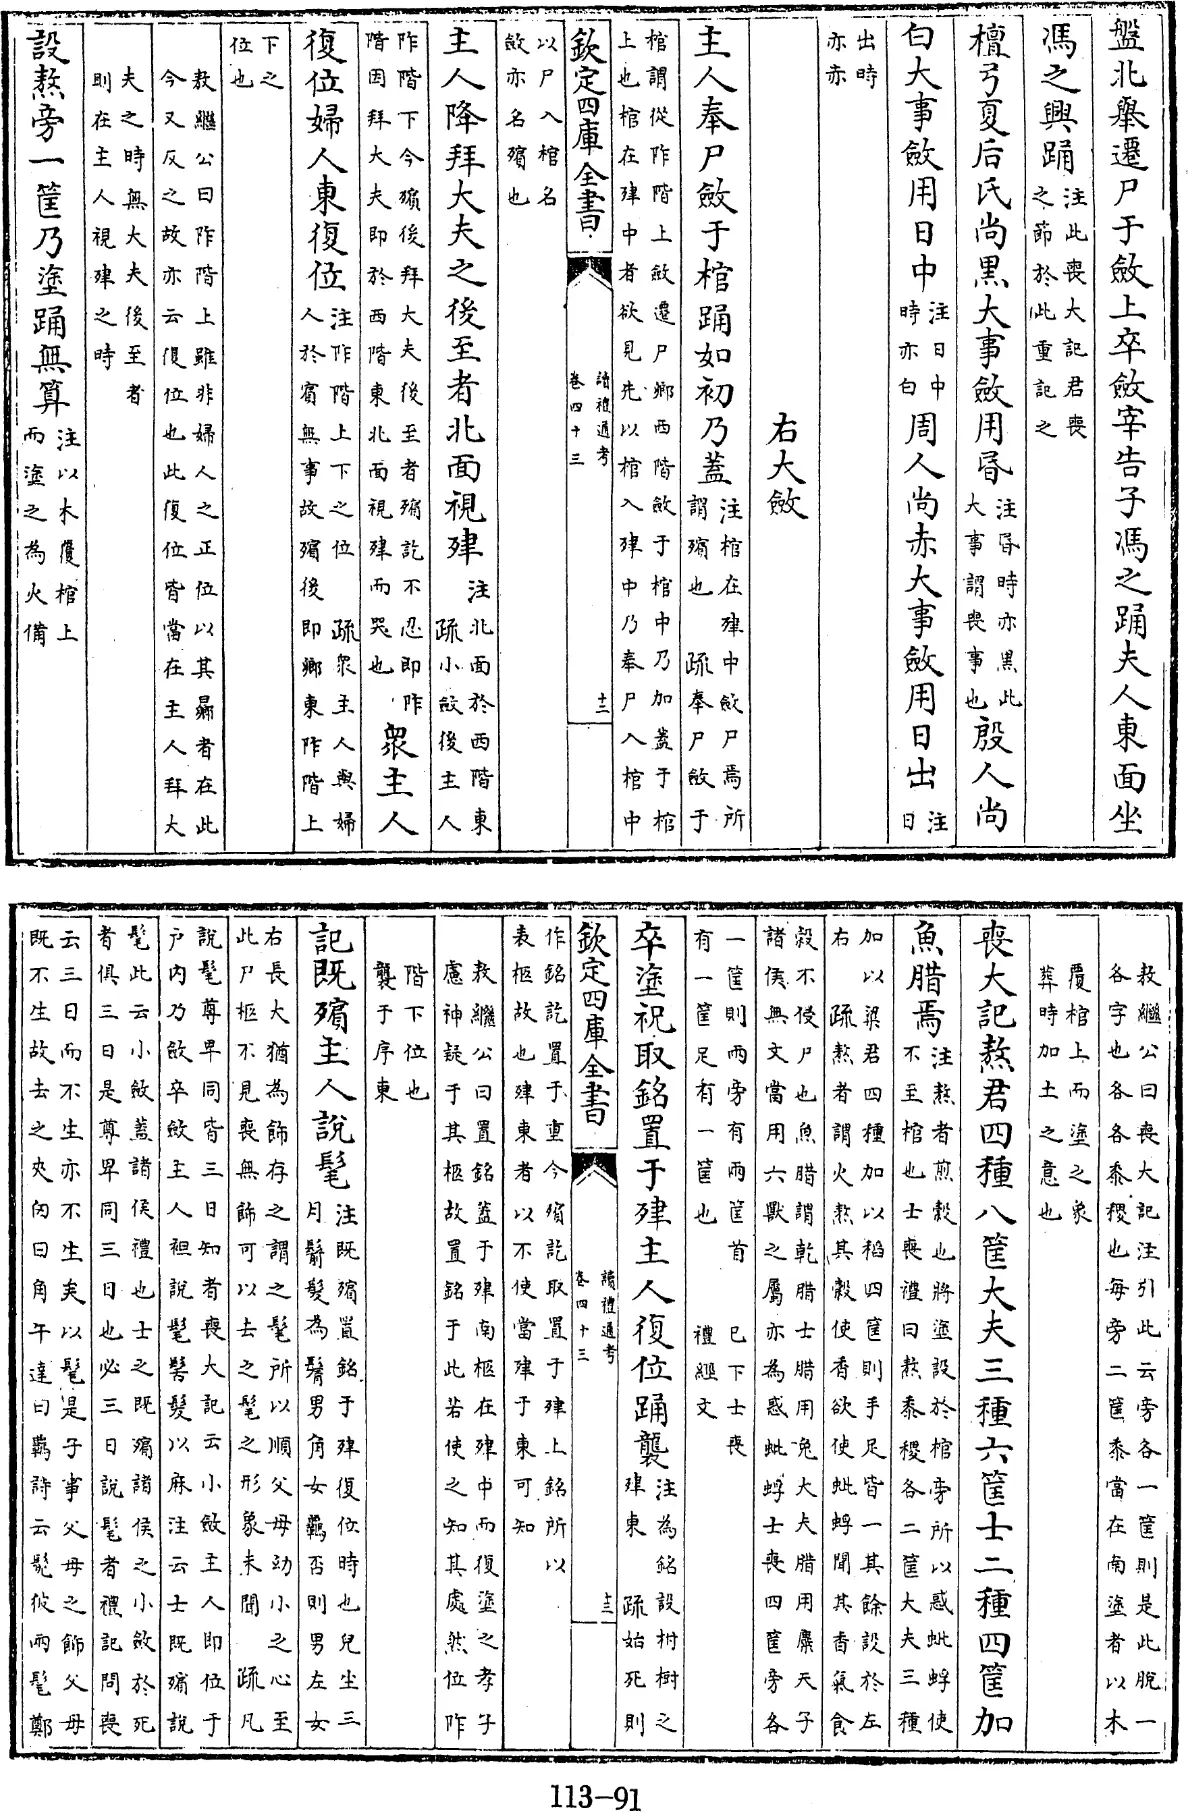 盤北舉遷尸于斂上卒斂宰告子馮之踊夫人東面坐
馮之興踊注此喪大記君喪之節於此重記之
檀弓夏后氏尚黑大事斂用昏注昏時亦黑此大事謂喪事也殷人尚
白大事斂用日中注日中時亦白周人尚赤大事斂用日出注日
出時亦赤
右大斂
主人奉尸斂于棺踊如初乃蓋注棺在肂中斂尸焉所謂殯也 疏奉尸斂于
棺謂從阼階上斂遷尸鄉西階斂于棺中乃加蓋于棺上也棺在肂中者欲見先以棺入肂中乃奉尸入棺中
欽定四庫全書
讀禮通考
卷四十三
十二
以尸入棺名斂亦名殯也
主人降拜大夫之後至者北面視肂注北面於西階東 疏小斂後主人
阼階下今殯後拜大夫後至者殯訖不忍即阼階因拜大夫即於西階東北面視肂而哭也衆主人
復位婦人東復位注阼階上下之位 疏衆主人與婦人於賓無事故殯後即鄉東阼階上
下之位也
敖繼公曰阼階上雖非婦人之正位以其曏者在此今又反之故亦云復位也此復位皆當在主人拜大
夫之時無大夫後至者則在主人視肂之時
設熬旁一筐乃塗踊無算注以木覆棺上而塗之為火備
敖繼公曰喪大記注引此云旁各一筐則是此脫一各字也各各黍稷也每旁二筐黍當在南塗者以木
覆棺上而塗之象葬時加土之意也
喪大記熬君四種八筐大夫三種六筐士二種四筐加
魚腊焉注熬者煎穀也將塗設於棺旁所以惑蚍蜉使不至棺也士喪禮曰熬黍稷各二筐大夫三種
加以粱君四種加以稻四筐則手足皆一其餘設於左右 疏熬者謂火熬其穀使香欲使蚍蜉聞其香氣食
穀不侵尸也魚腊謂乾腊士腊用兔大夫腊用麋天子諸侯無文當用六獸之屬亦為惑蚍蜉士喪四筐旁各
一筐則兩旁有兩筐首有一筐足有一筐也 巳下士喪禮經文
卒塗祝取銘置于肂主人復位踊襲注為銘設柎樹之肂東 疏始死則
欽定四庫全書
讀禮通考
卷四十三
十三
作銘訖置于重今殯訖取置于肂上銘所以表柩故也肂東者以不使當肂于東可知
敖繼公曰置銘蓋于肂南柩在肂中而復塗之孝子慮神疑于其柩故置銘于此若使之知其處然位阼
階下位也襲于序東
記既殯主人說髦注既殯置銘于肂復位時也兒坐三月鬋髮為鬌男角女羈否則男左女
右長大猶為飾存之謂之髦所以順父母幼小之心至此尸柩不見喪無飾可以去之髦之形象未聞 疏凡
說髦尊卑同皆三日知者喪大記云小斂主人即位于戶內乃斂卒斂主人袒說髦髺髮以麻注云士既殯說
髦此云小斂蓋諸侯禮也士之既殯諸侯之小斂於死者俱三日是尊卑同三日也必三日說髦者禮記問喪
云三日而不生亦不生矣以髦是子事父母之飾父母既不生故去之夾囟曰角午達曰羈詩云髧彼兩髦鄭
113-91